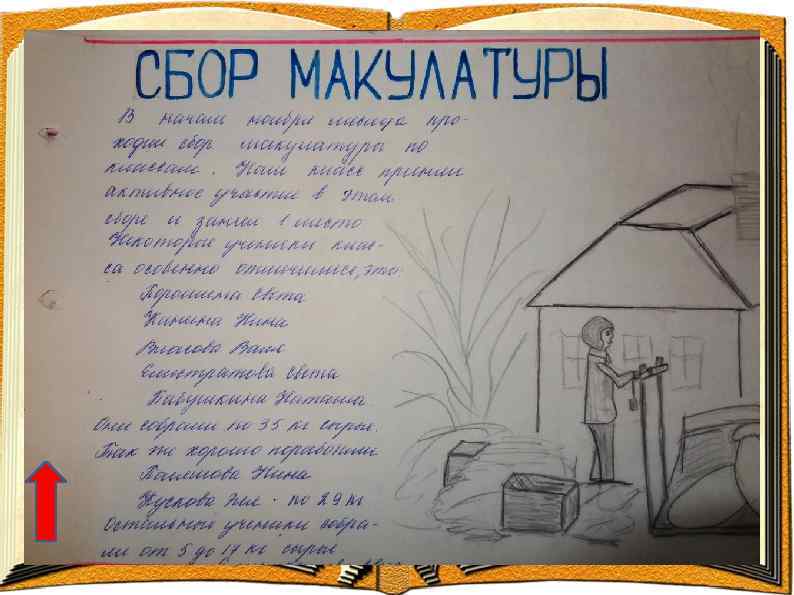 СБОР МАКУЛАТУРЫ
В начале ноября месяца про-
ходил сбор макулатуры по
классам. Наш класс принял
активное участие в этом
сборе и занял 1 место
Некоторые ученики клас-
са особенно отличились, это:
Света
Нина
Власова Валя
Елистратова Света
Бабушкина Наташа
Они собрали по 35 кг сырья.
Так же хорошо поработали
Нина
по 29 кг
Остальные ученики собра-
ли от 5 до 17 кг сырья